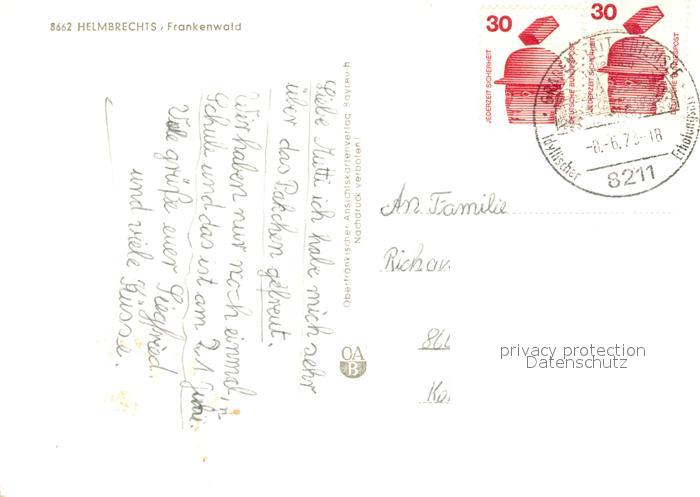 8662 HELMBRECHTS, Frankenwald
30
JEDERZEIT SICHERHEIT
DEUTSCHE BUNDESPOST
30
JEDERZEIT SICHERHEIT
DEUTSCHE BUNDESPOST
-8.-6.73-18
Idyllischer
Erholungsort
8211
Liebe Mutti ich habe mich sehr
über das Pakchen gefreut.
Wir haben nur noch einmal
Schule und das ist am 21 Juni.
Viele grüße euer Siegfried.
und viele Küsse.
Oberfränkischer Ansichtskartenverlag Bayreuth
Nachdruck verboten!
OA
B
An Familie
Richar
privacy protection
Datenschutz